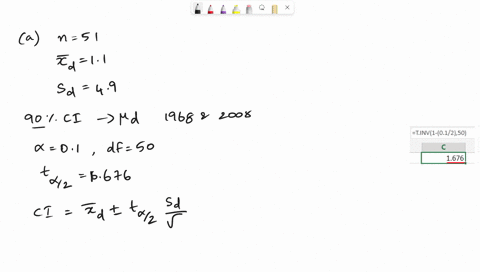 (a) n = 51
x̄d = 1.1
Sd = 4.9
90% CI → μd 1968 & 2008
α = 0.1 , df = 50
tα/2 = 1.676
CI = x̄d ± tα/2 Sd/√
=T.INV(1-(0.1/2),50)
C
1.676